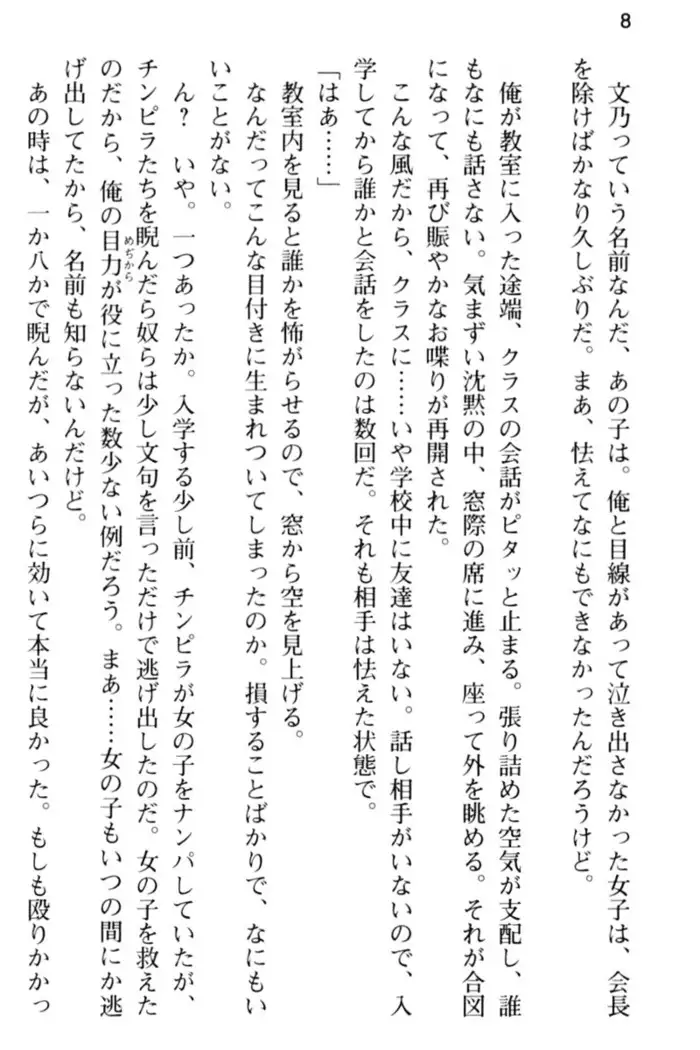 8
文乃っていう名前なんだ、あの子は。俺と目線があって泣き出さなかった女子は、会長
を除けばかなり久しぶりだ。まあ、怯えてなにもできなかったんだろうけど。
俺が教室に入った途端、クラスの会話がピタッと止まる。張り詰めた空気が支配し、誰
もなにも話さない。気まずい沈黙の中、窓際の席に進み、座って外を眺める。それが合図
になって、再び賑やかなお喋りが再開された。
こんな風だから、クラスに……いや学校中に友達はいない。話し相手がいないので、入
学してから誰かと会話をしたのは数回だ。それも相手は怯えた状態で。
「はあ……」
教室内を見ると誰かを怖がらせるので、窓から空を見上げる。
なんだってこんな目付きに生まれついてしまったのか。損することばかりで、なにもい
いことがない。
ん？　いや。一つあったか。入学する少し前、チンピラが女の子をナンパしていたが、
チンピラたちを睨んだら奴らは少し文句を言っただけで逃げ出したのだ。女の子を救えた
のだから、俺の目力が役に立った数少ない例だろう。まあ……女の子もいつの間にか逃
めぢから
げ出してたから、名前も知らないんだけど。
あの時は、一か八かで睨んだが、あいつらに効いて本当に良かった。もしも殴りかかっ